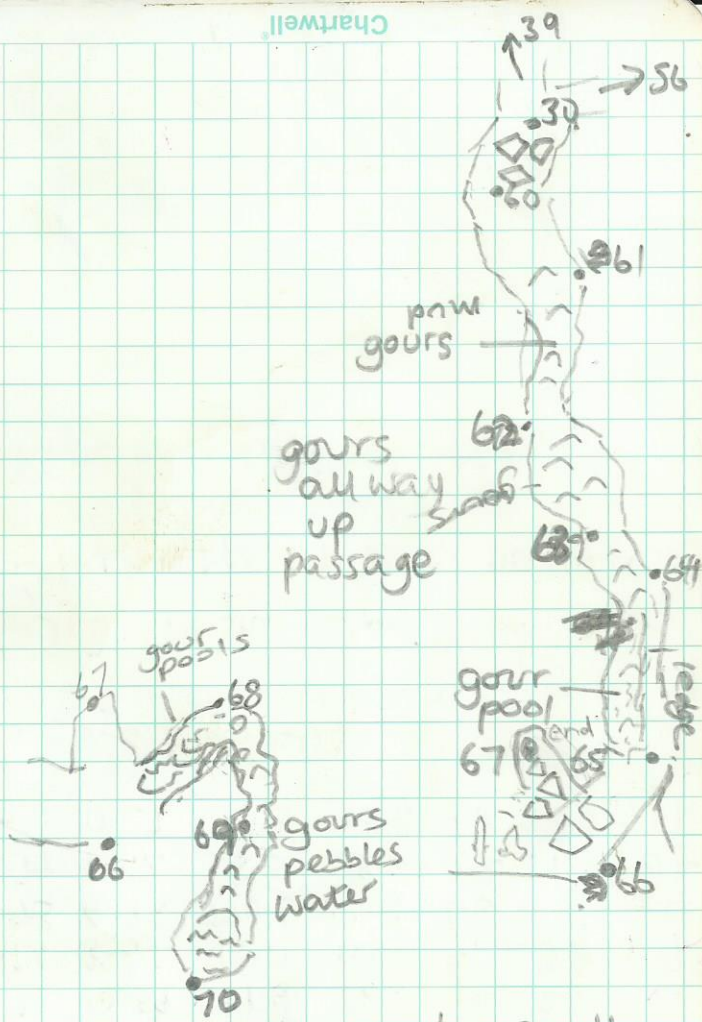 Chartwell
39
56
30
60
61
gours
62
gours
all way
up
passage
63
64
gour
pools
67
68
gour
pool
ledge
end
67
65
69
gours
pebbles
water
66
66
70